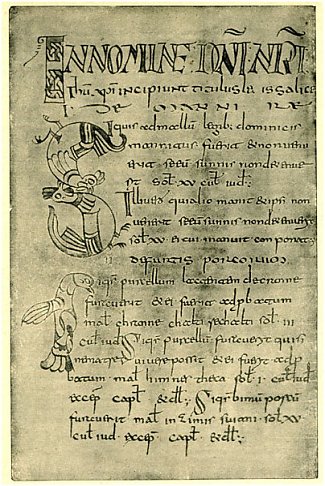 IN NOMINE DNI NRI
Ihu xpi incipiunt tituli legis salice
I. DE MANNIRE
Siquis ad mallum legib; dominicis
mannitus fuerit & non uene
rit sunnis non detenue
rit sol xv cul iud;
Ille uero qui alio mannit & ipsi non
uenerit sunnis non detenuerit
sol xv ei cui manuit conponat
II De furtis porcorum
Siqis porcellum lactantem de cranne
furauerit & ei fuerit adpbatum
mal chranne chalti rechalti sol III
cul iud Siqis porcellu furauerit qui sine
matre uiuere possit & ei fuerit adp
batum mal himnes theca sol I cul iud
excep capt & del; Siqis bimum porcu
furauerit mal inzimis suiani sol xv
cul iud excep capt & del;